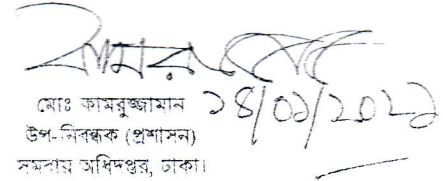 মোঃ কামরুজ্জামান
১৪/০১/২০২১
উপ-নিবন্ধক (প্রশাসন)
সমবায় অধিদপ্তর, ঢাকা।